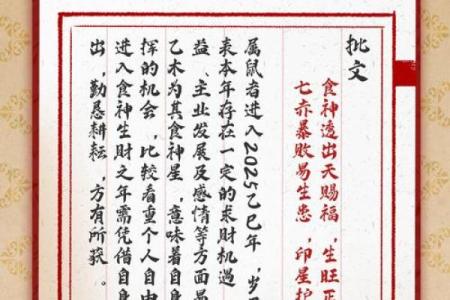 批文
食神透出天赐福，生旺正
七赤暴败易生患，印星护
属鼠者进入2025乙巳年，岁
表本年存在一定的求财机遇
益、主业发展及感情等方面易
乙木为其食神星，意味着自身
挥的机会，比较看重个人自由
进入食神生财之年需凭借自身
出，勤恳耕耘，方有所获。